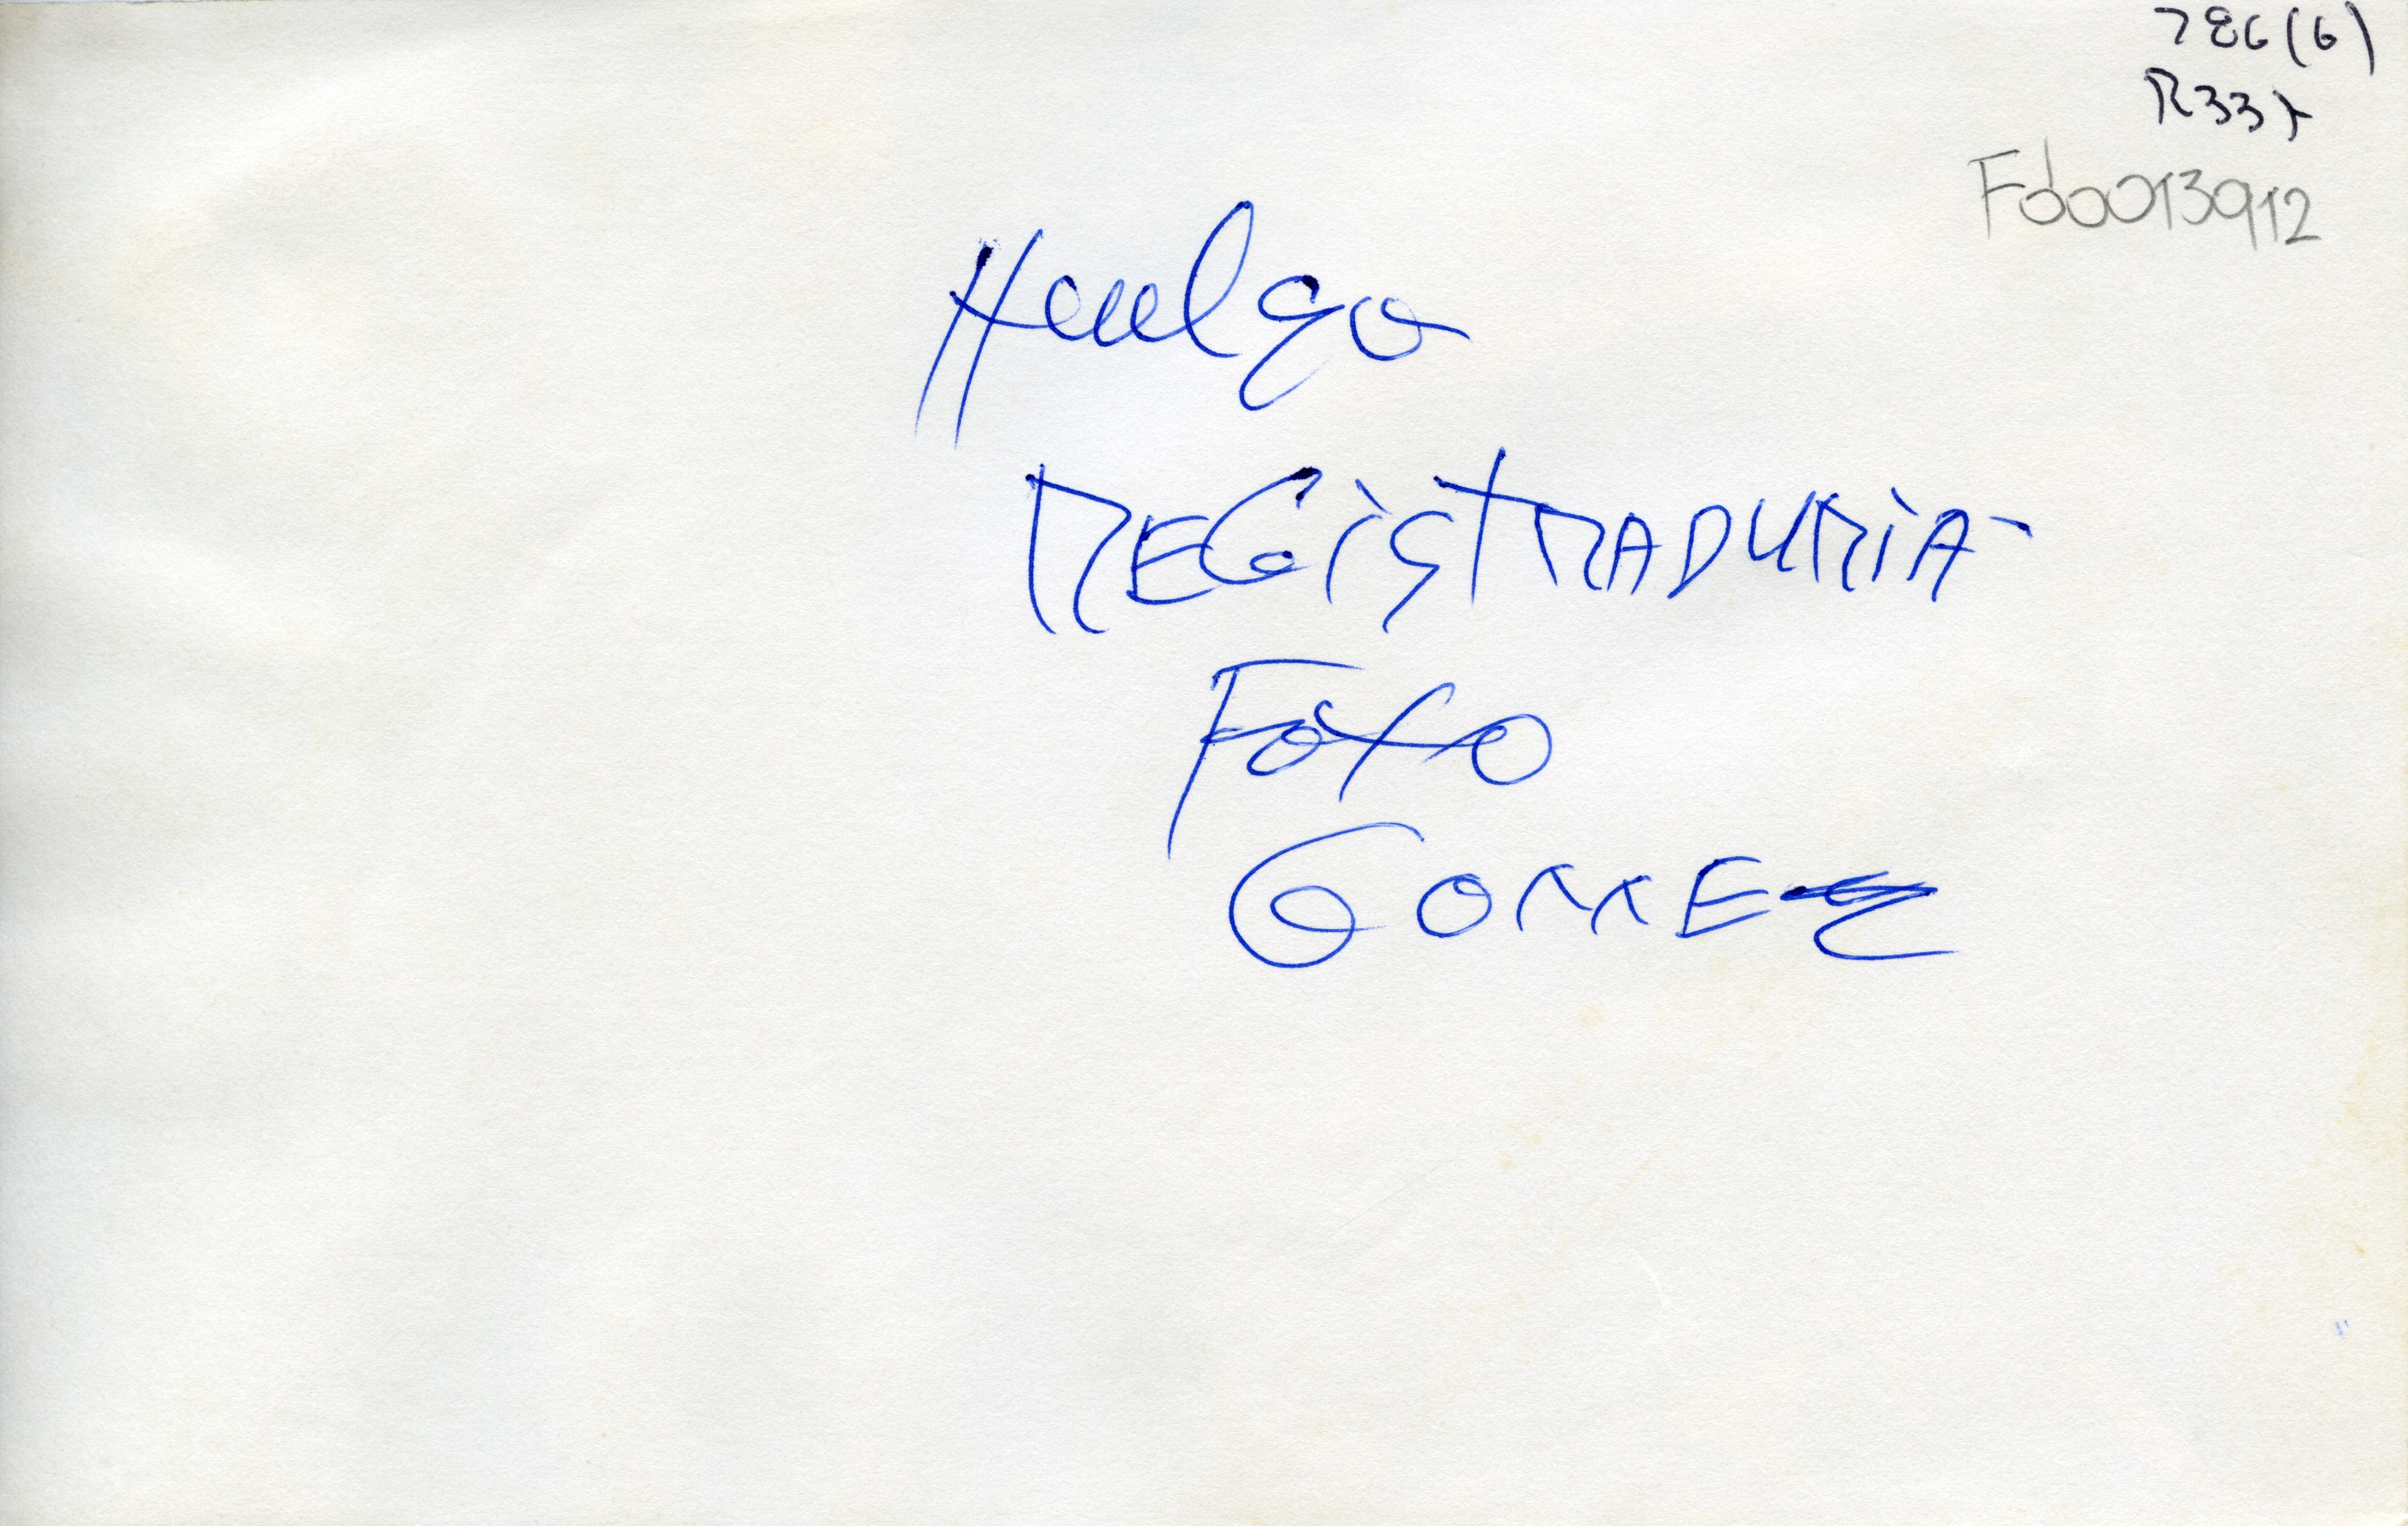 786(6)
R33r
Fd0013912
Huelga
REGiSTRADURiA-
Foto
GOMEZ